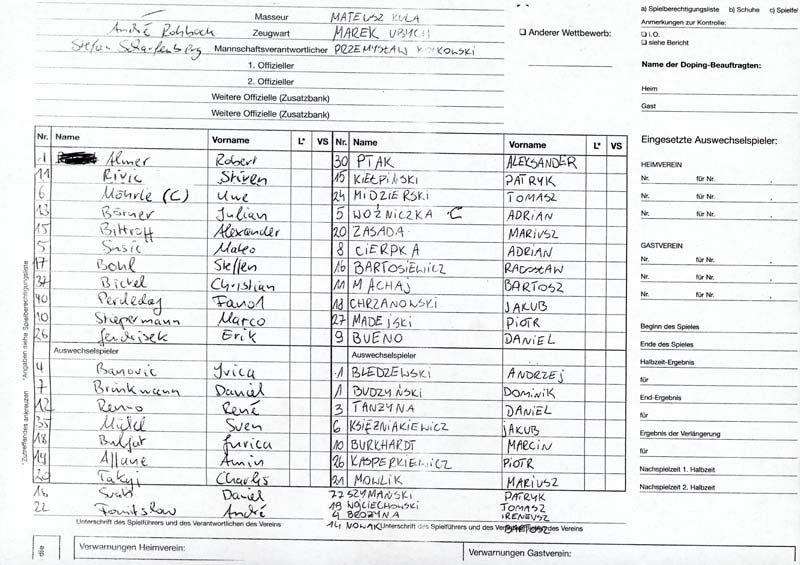 Masseur MATEUSZ KULA
André Rohbock Zeugwart MAREK UBYCH
Stefan Scharfenberg Mannschaftsverantwortlicher PRZEMYSŁAW
1. Offizieller
2. Offizieller
Weitere Offizielle (Zusatzbank)
Weitere Offizielle (Zusatzbank)
❑ Anderer Wettbewerb:
a) Spielberechtigungsliste b) Schuhe c) Spielfel
Anmerkungen zur Kontrolle:
❑ i.O.
❑ siehe Bericht
Name der Doping-Beauftragten:
Heim
Gast
Nr. Name Vorname L* VS Nr. Name Vorname L* VS
1 Almer Robert 30 PTAK ALEKSANDER
11 Rivic Stiven 15 KIEŁPIŃSKI PATRYK
6 Möhrle (C) Uwe 24 MIDZIERSKI TOMASZ
13 Börner Julian 5 WOŹNICZKA C ADRIAN
15 Bittroff Alexander 20 ZASADA MARIUSZ
5 Susic Mateo 8 CIERPKA ADRIAN
17 Bohl Steffen 16 BARTOSIEWICZ RADOSŁAW
37 Bickel Christian 11 MACHAJ BARTOSZ
40 Perdedaj Fanol 18 CHRZANOWSKI JAKUB
10 Stiepermann Marco 27 MADEJSKI PIOTR
26 Jendrisek Erik 9 BUENO DANIEL
Auswechselspieler Auswechselspieler
4 Banovic Ivica 1 BŁEDZEWSKI ANDRZEJ
7 Brinkmann Daniel 1 BUDZYŃSKI DOMINIK
12 Renno René 3 TANŻYNA DANIEL
35 Michel Sven 6 KSIĘŻNIAKIEWICZ JAKUB
18 Buljat Jurica 10 BURKHARDT MARCIN
19 Allane Amin 26 KASPERKIEWICZ PIOTR
20 Takyi Charles 21 MOWLIK MARIUSZ
16 Svab Daniel 77 SZYMAŃSKI PATRYK
22 André 19 WOJCIECHOWSKI TOMASZ
4 BROŻYNA IRENEUSZ
14 NOWAK BARTOSZ
Unterschrift des Spielführers und des Verantwortlichen des Vereins Unterschrift des Spielführers und des Vereins
*Zutreffendes ankreuzen *Angaben siehe Spielberechtigungsliste
Eingesetzte Auswechselspieler:
HEIMVEREIN
Nr. für Nr. .
Nr. für Nr. .
Nr. für Nr. .
GASTVEREIN
Nr. für Nr. .
Nr. für Nr. .
Nr. für Nr. .
Beginn des Spieles
Ende des Spieles
Halbzeit-Ergebnis
für
End-Ergebnis
für
Ergebnis der Verlängerung
für
Nachspielzeit 1. Halbzeit
Nachspielzeit 2. Halbzeit
die Verwarnungen Heimverein: Verwarnungen Gastverein: